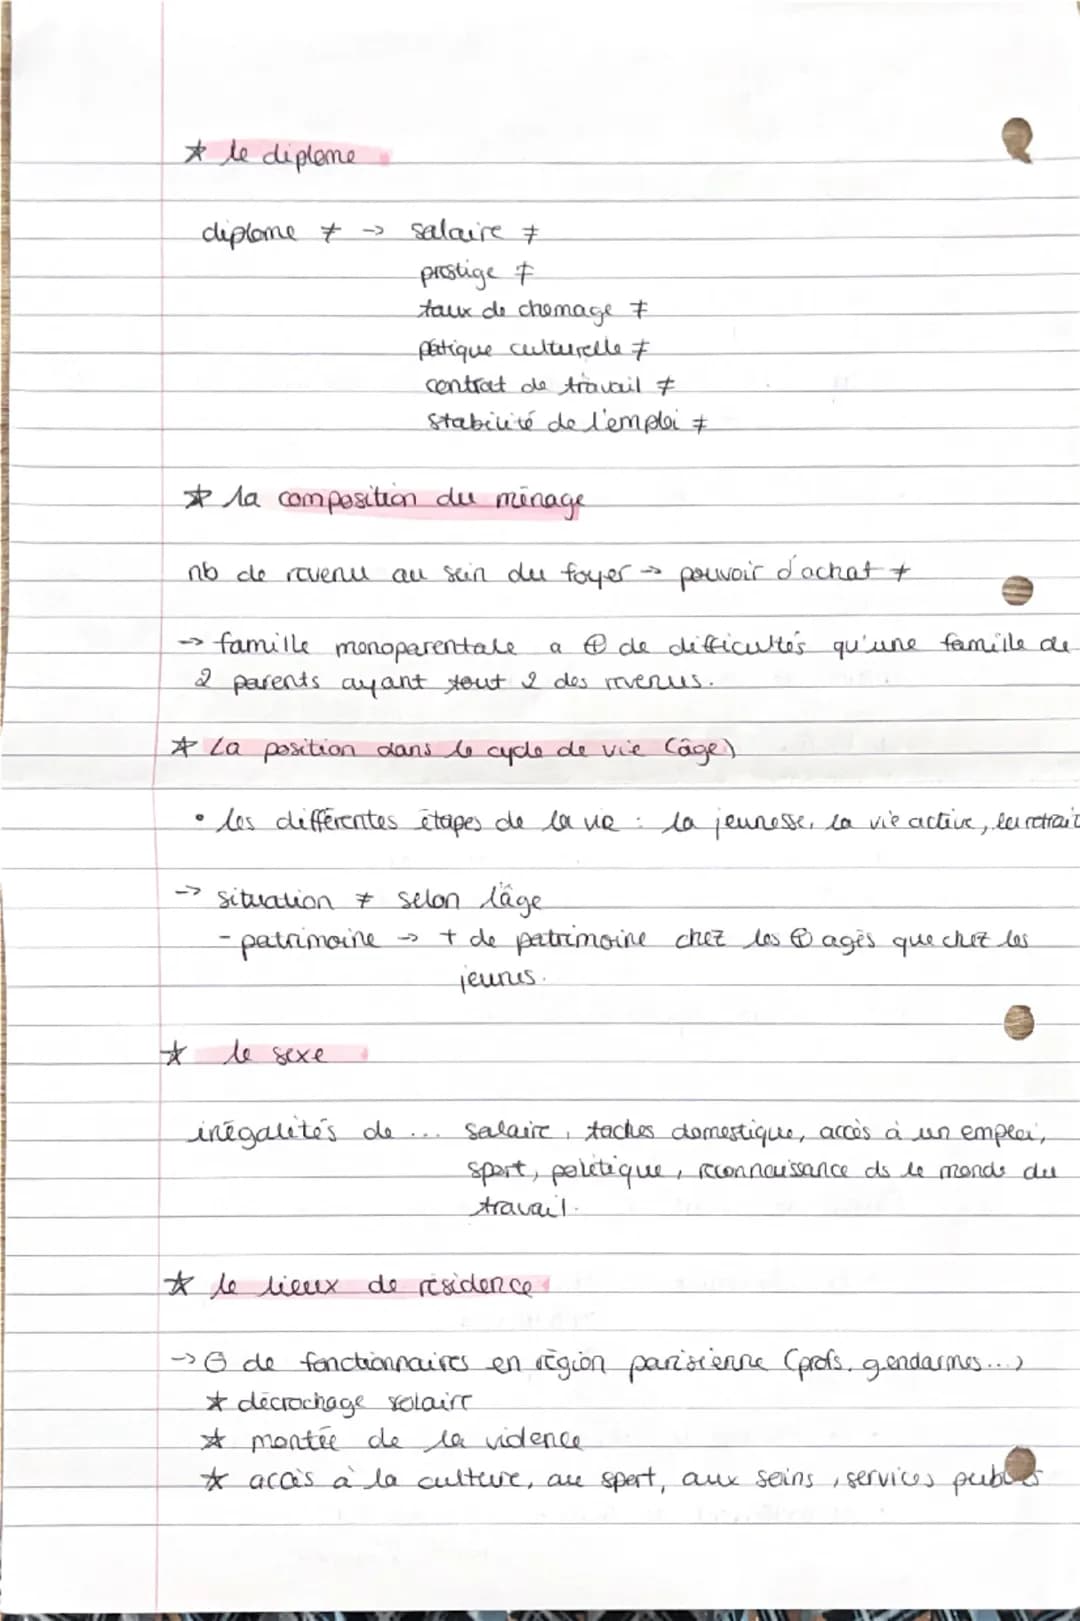 ☆ le diplome
diplome ≠ -> salaire ≠
prestige ≠
taux de chomage ≠
patique culturelle ≠
contrat de travail ≠
stabilité de l'emploi ≠
☆ la composition du ménage
nb de revenu au sein du foyer -> pouvoir d'achat ≠
-> famille monoparentale a ⊕ de difficultés qu'une famille de
2 parents ayant tout 2 des revenus.
☆ La position dans le cycle de vie (âge)
• les différentes étapes de la vie : la jeunesse, la vie active, la retrait
-> situation ≠ selon l'âge
- patrimoine -> + de patrimoine chez les ⊕ agés que chez les
jeunes.
☆ le sexe
inégalités de ... salaire, taches domestique, accès à un emploi,
sport, politique, reconnaissance ds le monde du
travail.
☆ le lieux de résidence
-> ⊖ de fonctionnaires en région parisienne (profs, gendarmes...)
☆ décrochage solaire
☆ montée de la violence
☆ accès à la culture, au sport, aux soins, services publics